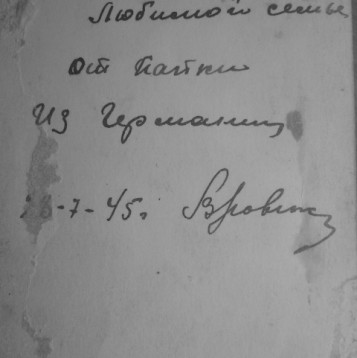 Любимой семье
от папки
Из Германии
-7-45.